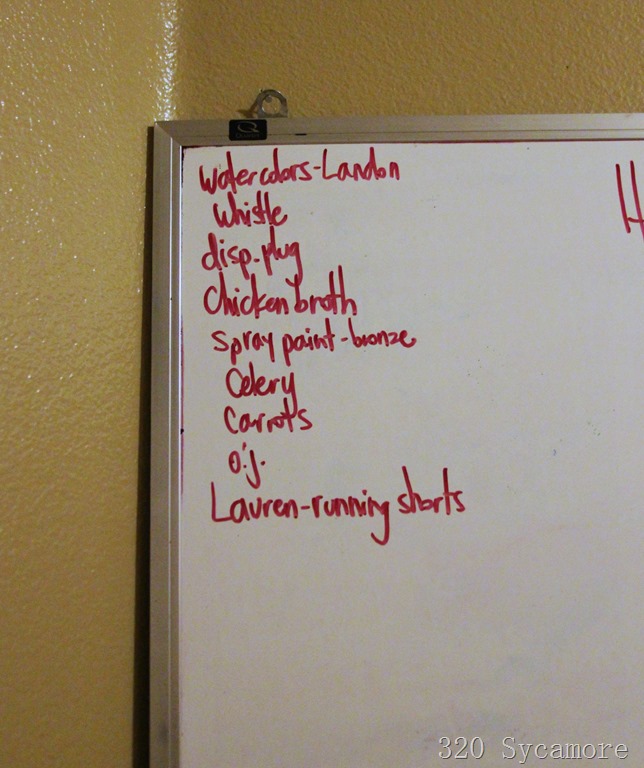 watercolors-Landon
Whistle
disp.-plug
Chicken broth
spray paint-bronze
Celery
Carrots
o.j.
Lauren-running shorts
H
320 Sycamore